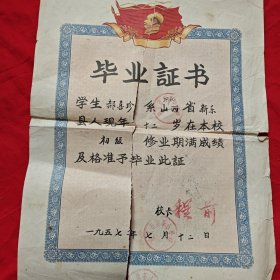 毕业証书
学生郝喜珍系山西省新乐
县人现年十二岁在本校
初级修业期满成绩
及格准予毕业此証
校长
一九五七年七月十二日